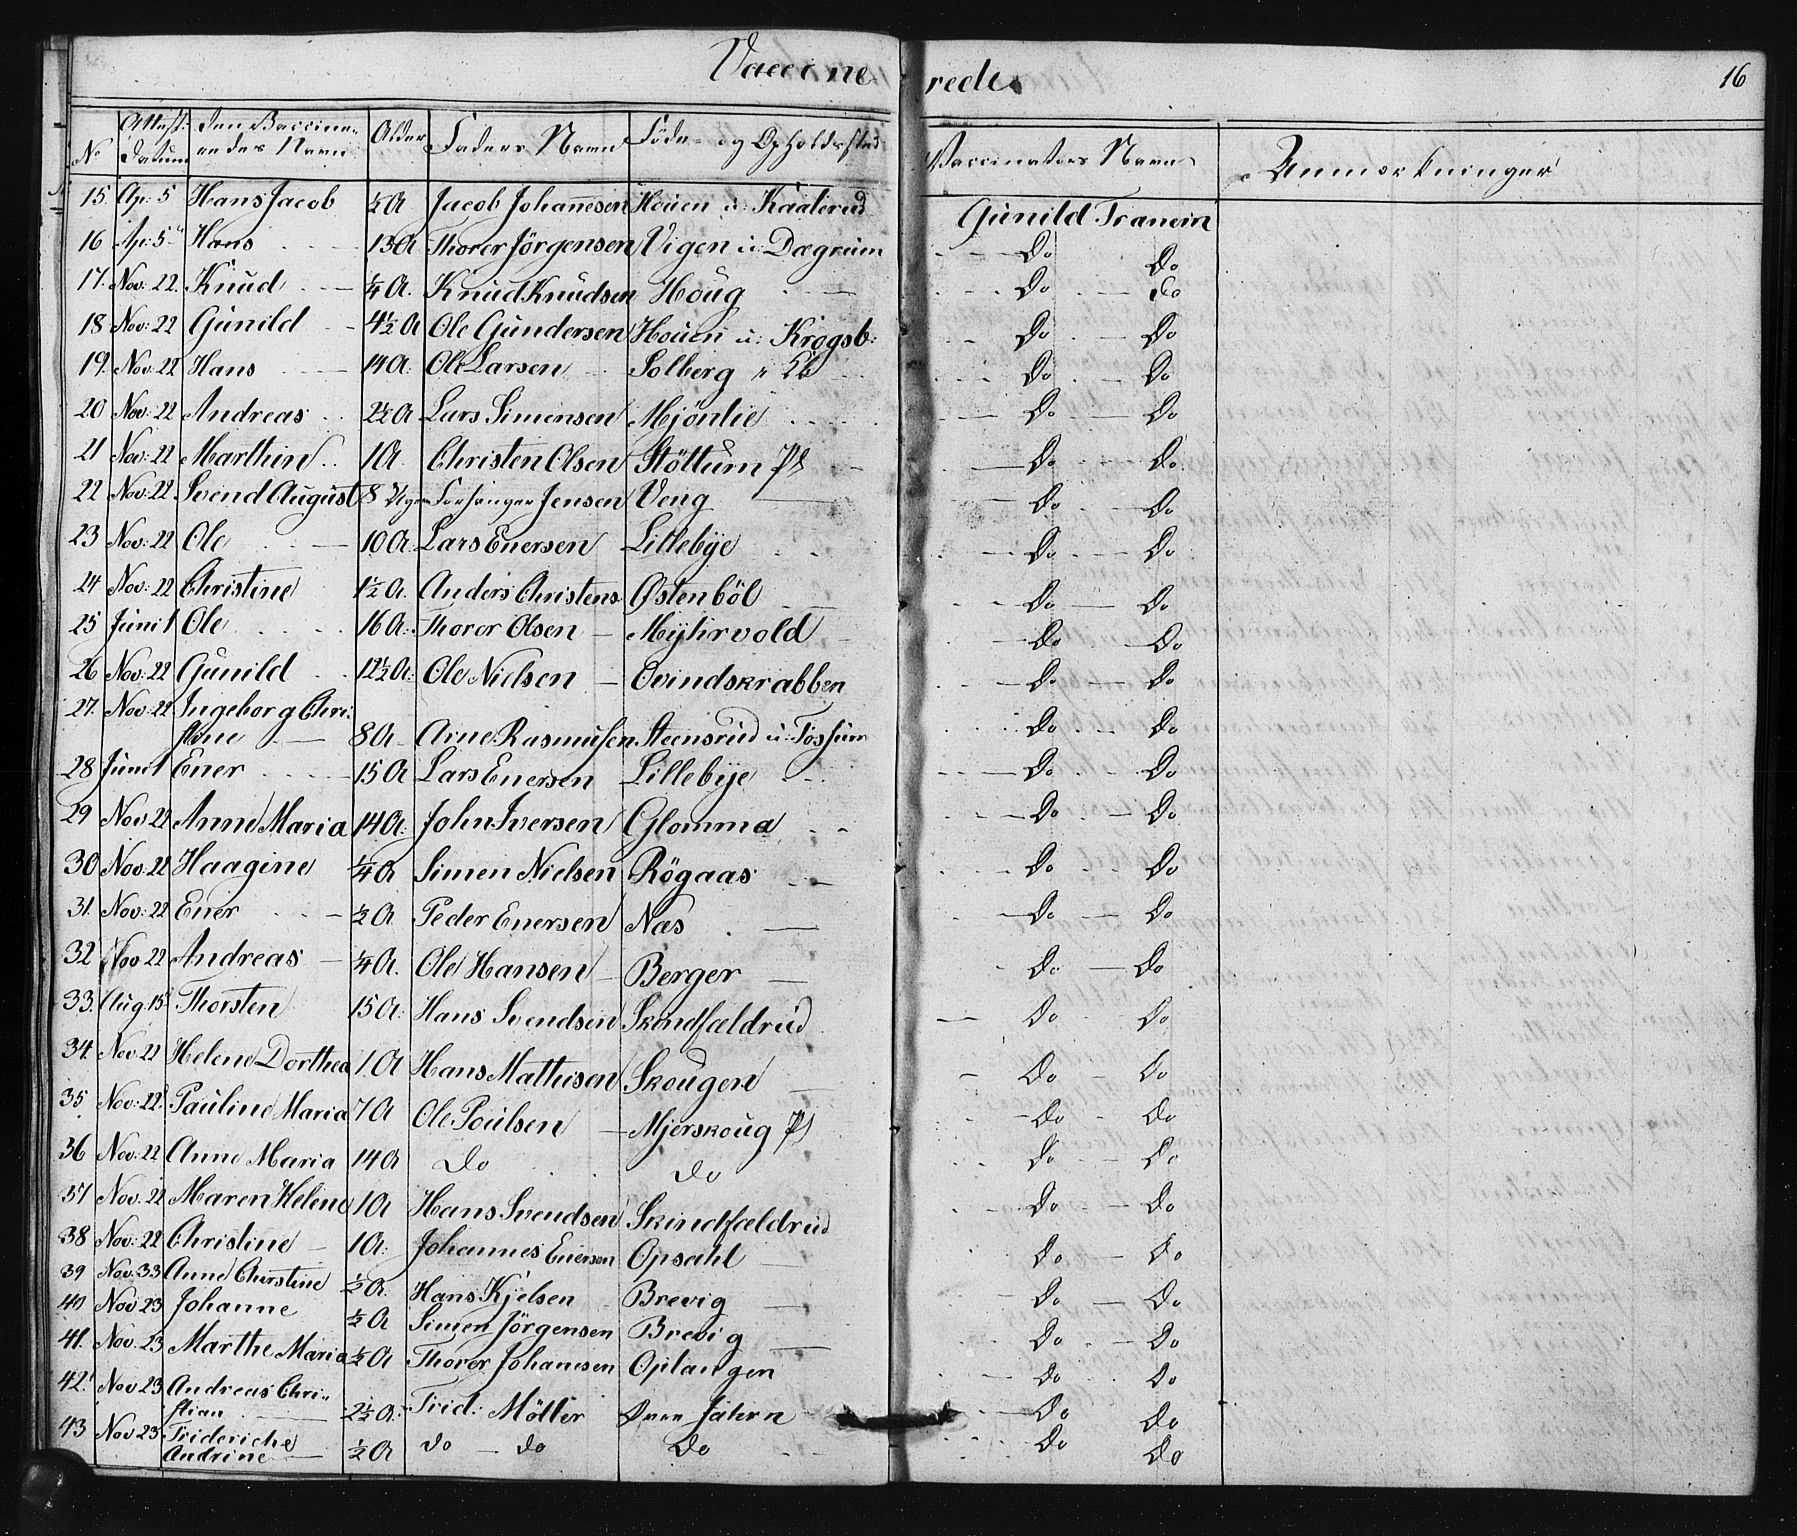 Vaccinerede
16
No Attest: Datum den Vaccinerendes Navn Alder Faders Navn Föde- og Opholdssted Vaccinators Navn Anmærkninger
15 Ap: 5 Hans Jacob ½ A Jacob Johannesen Houen u: Kaaterud Gunild Tranem
16 Ap: 5 Hans 13 A Thorer Jörgensen Vigen u: Dægrum Do Do
17. Nov: 22. Knud ¼ A. Knud Knudsen Houg Do Do
18 Nov: 22 Gunild 4½ A Ole Gundersen Houen u: Krogsb: Do Do
19. Nov: 22 Hans 14 A. Ole Larsen Solberg Do Do
20 Nov: 22 Andreas 2½ A Lars Simensen Mjönlie Do Do
21 Nov: 22 Marthin 1 A. Christen Olsen Stöttum Pl Do Do
22 Nov: 22 Svend August 8 Uger Jensen Veng Do Do
23 Nov: 22 Ole 10 A. Lars Enersen Lillebÿe Do Do
24 Nov: 22 Christine 1½ A. Anders Christens Östenböl Do Do
25 Juni 1 Ole 16 A: Thoror Olsen Mÿhrvold Do Do
26 Nov: 22 Gunild 12½ A: Ole Nielsen Ovindskrabben Do Do
27. Nov: 22 Ingeborg Chri:
stine 8 A Arne Rasmusen Steensrud u: Fossum Do Do
28 Juni 1 Ener 15 A Lars Enersen Lillebÿe Do Do
29 Nov 22 Anne Maria 14 A: John Iversen Glomma Do Do
30 Nov: 22 Haagine ¼ A Simen Nielsen Rögaas Do Do
31. Nov: 22 Ener ½ A Peder Enersen Næs Do Do
32 Nov 22 Andreas ¼ A. Ole Hansen Berger Do Do
33. Aug. 15 Thorsten 15 A: Hans Svendsen Skindfældrud Do Do
34. Nov: 22 Helene Dorthea 1 A Hans Mathisen Skougen Do Do
35 Nov: 22. Pauline Maria 7 A Ole Poulsen Mjerskoug Pl Do Do
36 Nov: 22 Anne Maria 14 A Do Do Do Do
37 Nov. 22 Maren Helene 10 A Hans Svendsen Skindfældrud Do Do
38 Nov: 22 Christine 1 A: Johannes Enersen Opsahl Do Do
39 Nov. 33 Anne Christine ½ A. Hans Kjelsen Brevig Do Do
40 Nov 23 Johanne ½ A Simen Jörgensen Brevig Do Do
41. Nov. 23 Marthe Maria ½ A Thorer Johanesen Oplangen Do Do
42. Nov 23 Andreas Chri-
stian 2½ A: Frid: Möller Jahren Do Do
43 Nov 23 Friderichie
Andrine ½ A do do Do Do Do